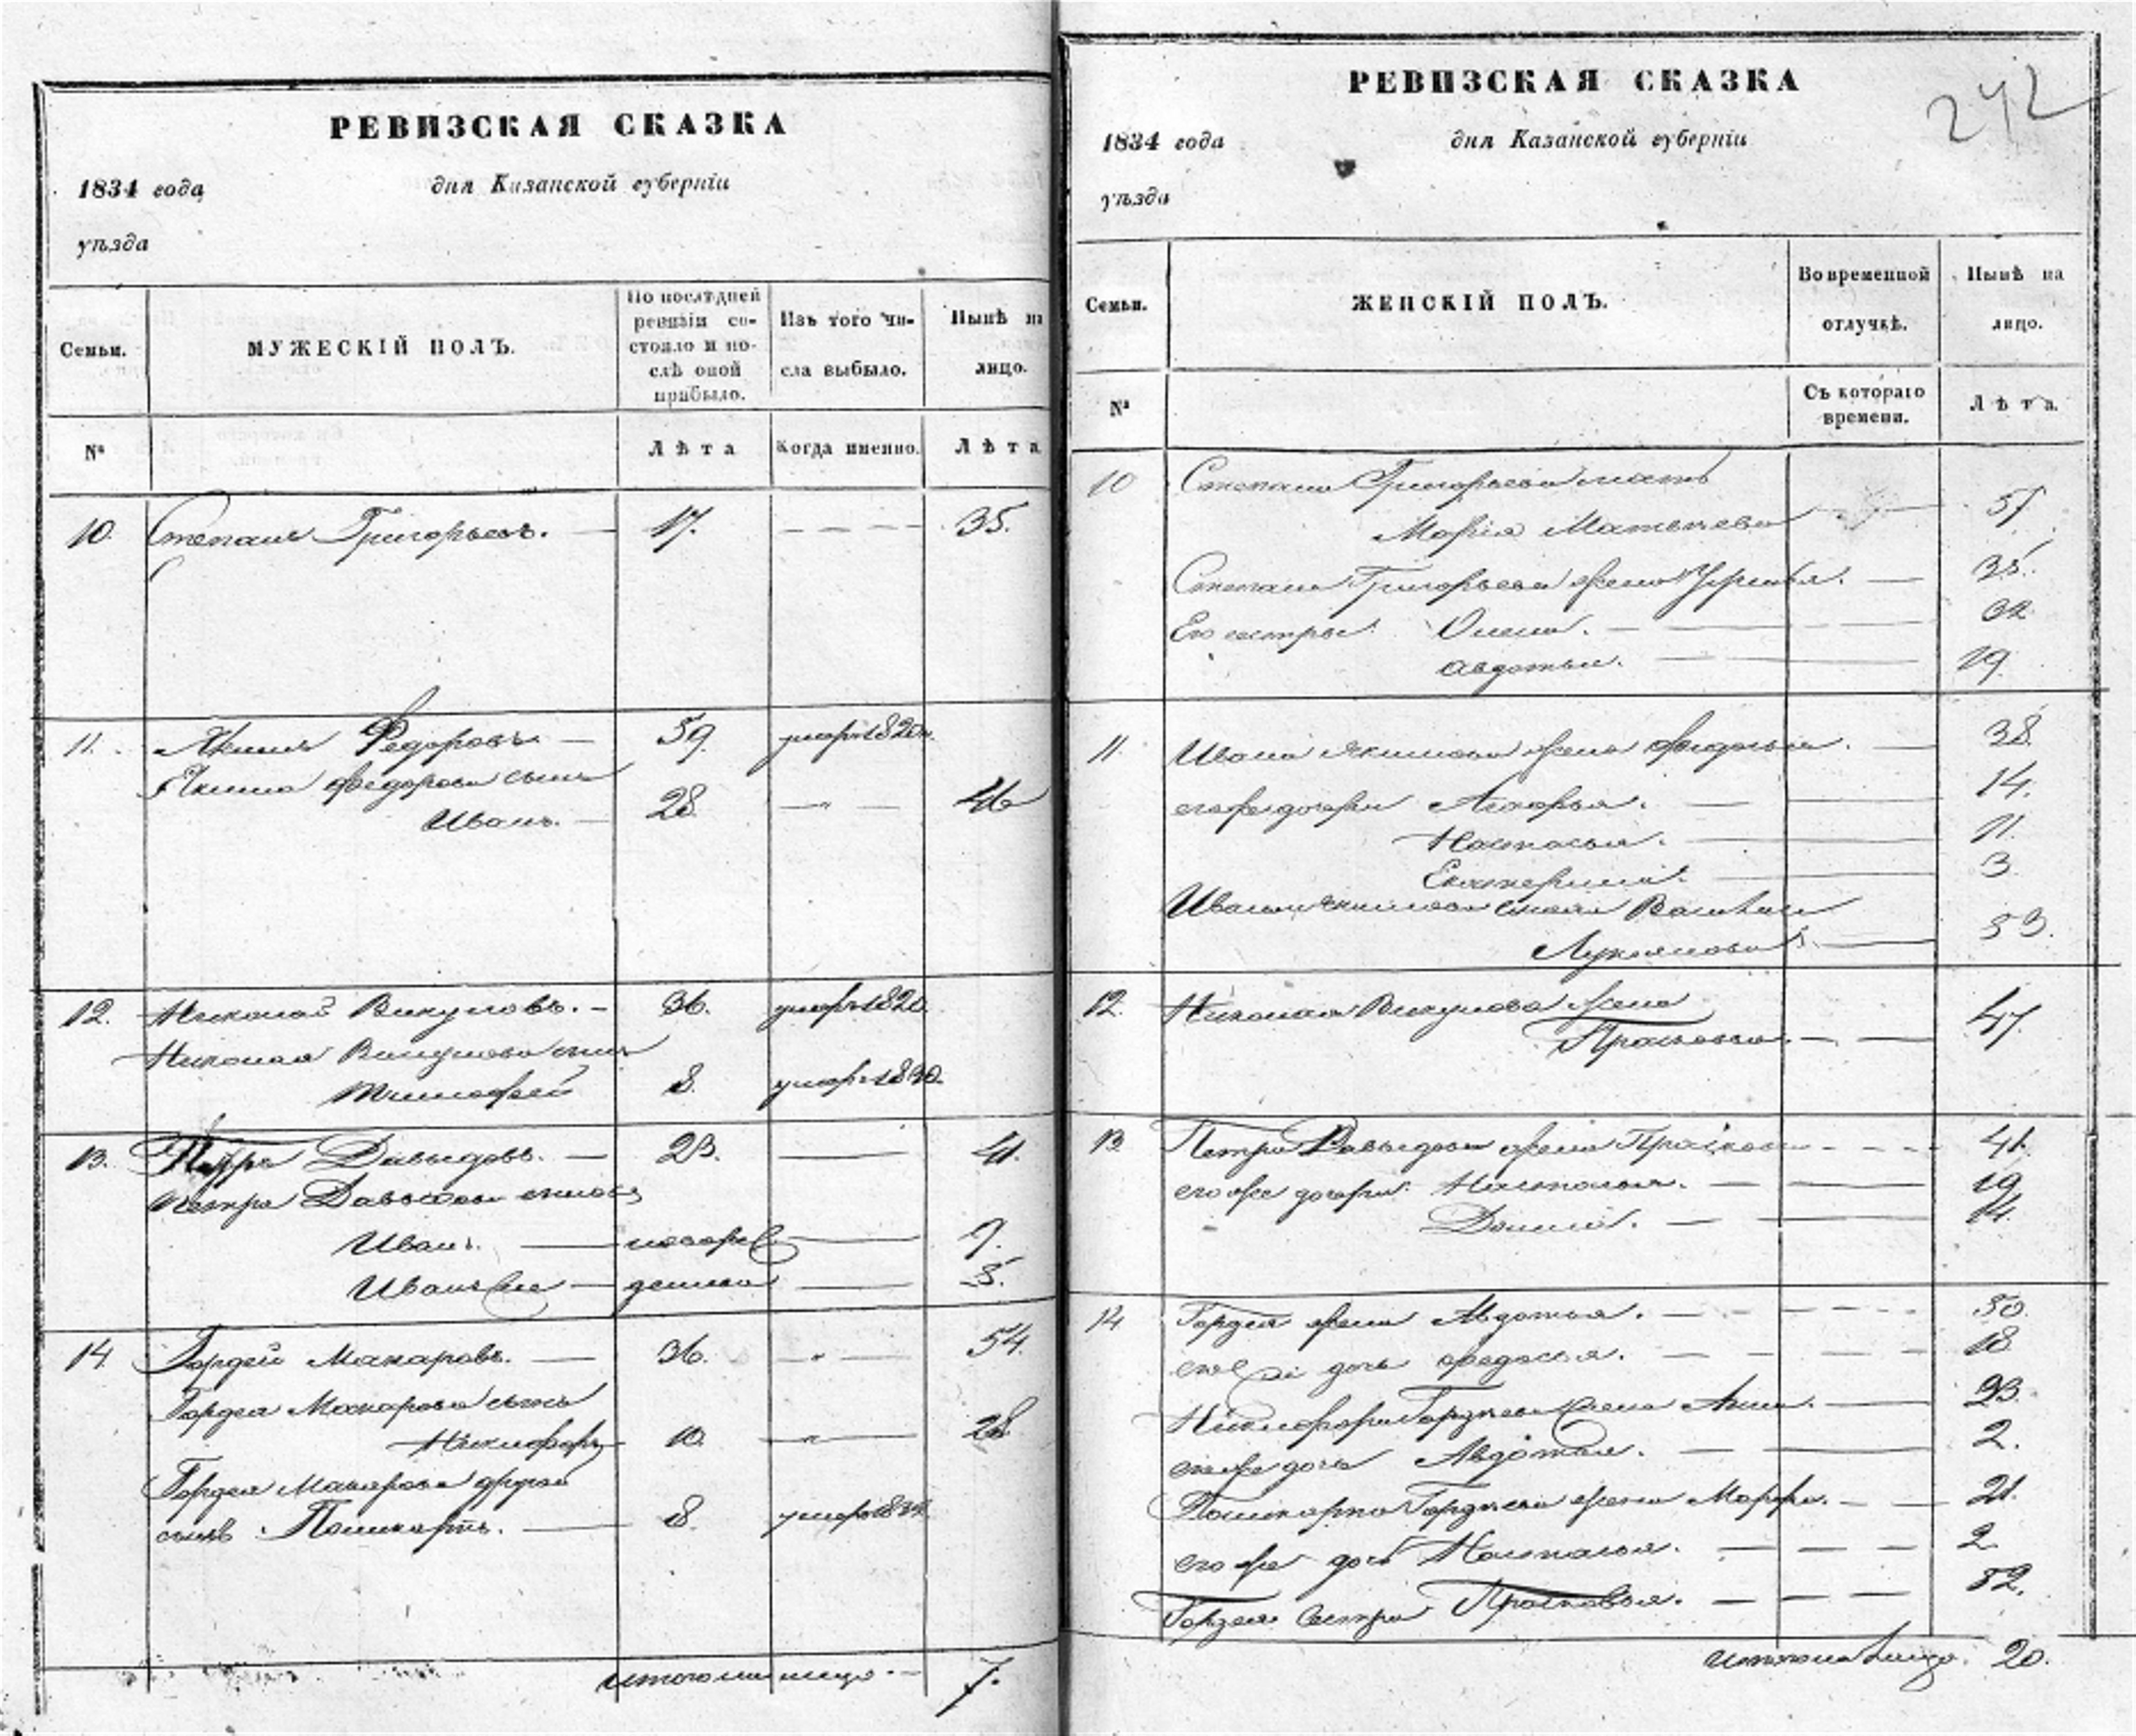 РЕВИЗСКАЯ СКАЗКА
1834 года дня Казанской губерніи
уѣзда
Семьи. МУЖЕСКІЙ ПОЛЪ. По послѣдней ревизіи состояло и послѣ оной прибыло. Изъ того числа выбыло. Нынѣ на лицо.
№ Лѣта Когда именно. Лѣта
10. Степанъ Григорьевъ. — 17. — — — 35.
11. Якимъ Федоровъ — 59. умеръ 1820
Якима Федорова сынъ
Иванъ. — 28. — " — 46
12. Николай Викуловъ. — 36. умеръ 1820
Николая Викулова сынъ
Тимофей 8.
13. Петръ Давыдовъ. — 23. — 41.
Петра Давыдова
Иванъ. — новорож — 7.
Иванъ же — денные — 5.
14. Гордей Макаровъ. — 36. — " — 54.
Гордея Макарова сынъ
Никифоръ 10. — " — 28
Гордея Макарова другой
сынъ Панкратъ. — 8. умеръ
итого на лицо — 7.
РЕВИЗСКАЯ СКАЗКА 242
1834 года дня Казанской губерніи
уѣзда
Семьи. ЖЕНСКІЙ ПОЛЪ. Во временной отлучкѣ. Нынѣ на лицо.
№ Съ котораго времени. Лѣта.
10 Степана Григорьева мать
Марья Матвеева — 57
Степана Григорьева жена — 35.
Его сестры Олена. — 32
Авдотья. — 19.
11. Ивана Якимова жена Федосья. — 38.
его же дочери — 14.
Настасья. — 11.
Екатерина. — 3.
Ивана Якимова
Лукоянова — 53.
12. Николая Викулова жена
Прасковья — 47.
13 Петра Давыдова жена Прасковья - - - 41.
его же дочери Настасья. — 19
Домна. — 14.
14 Гордея жена Авдотья. — 50.
его же дочь Федосья. — 18
Никифора Гордеева жена Анна. — 23.
его же дочь Авдотья. — 2.
Панкрата Гордеева жена Марфа. — 21.
его же дочь Настасья. — 2.
Гордея сестра Прасковья. — 52.
20.